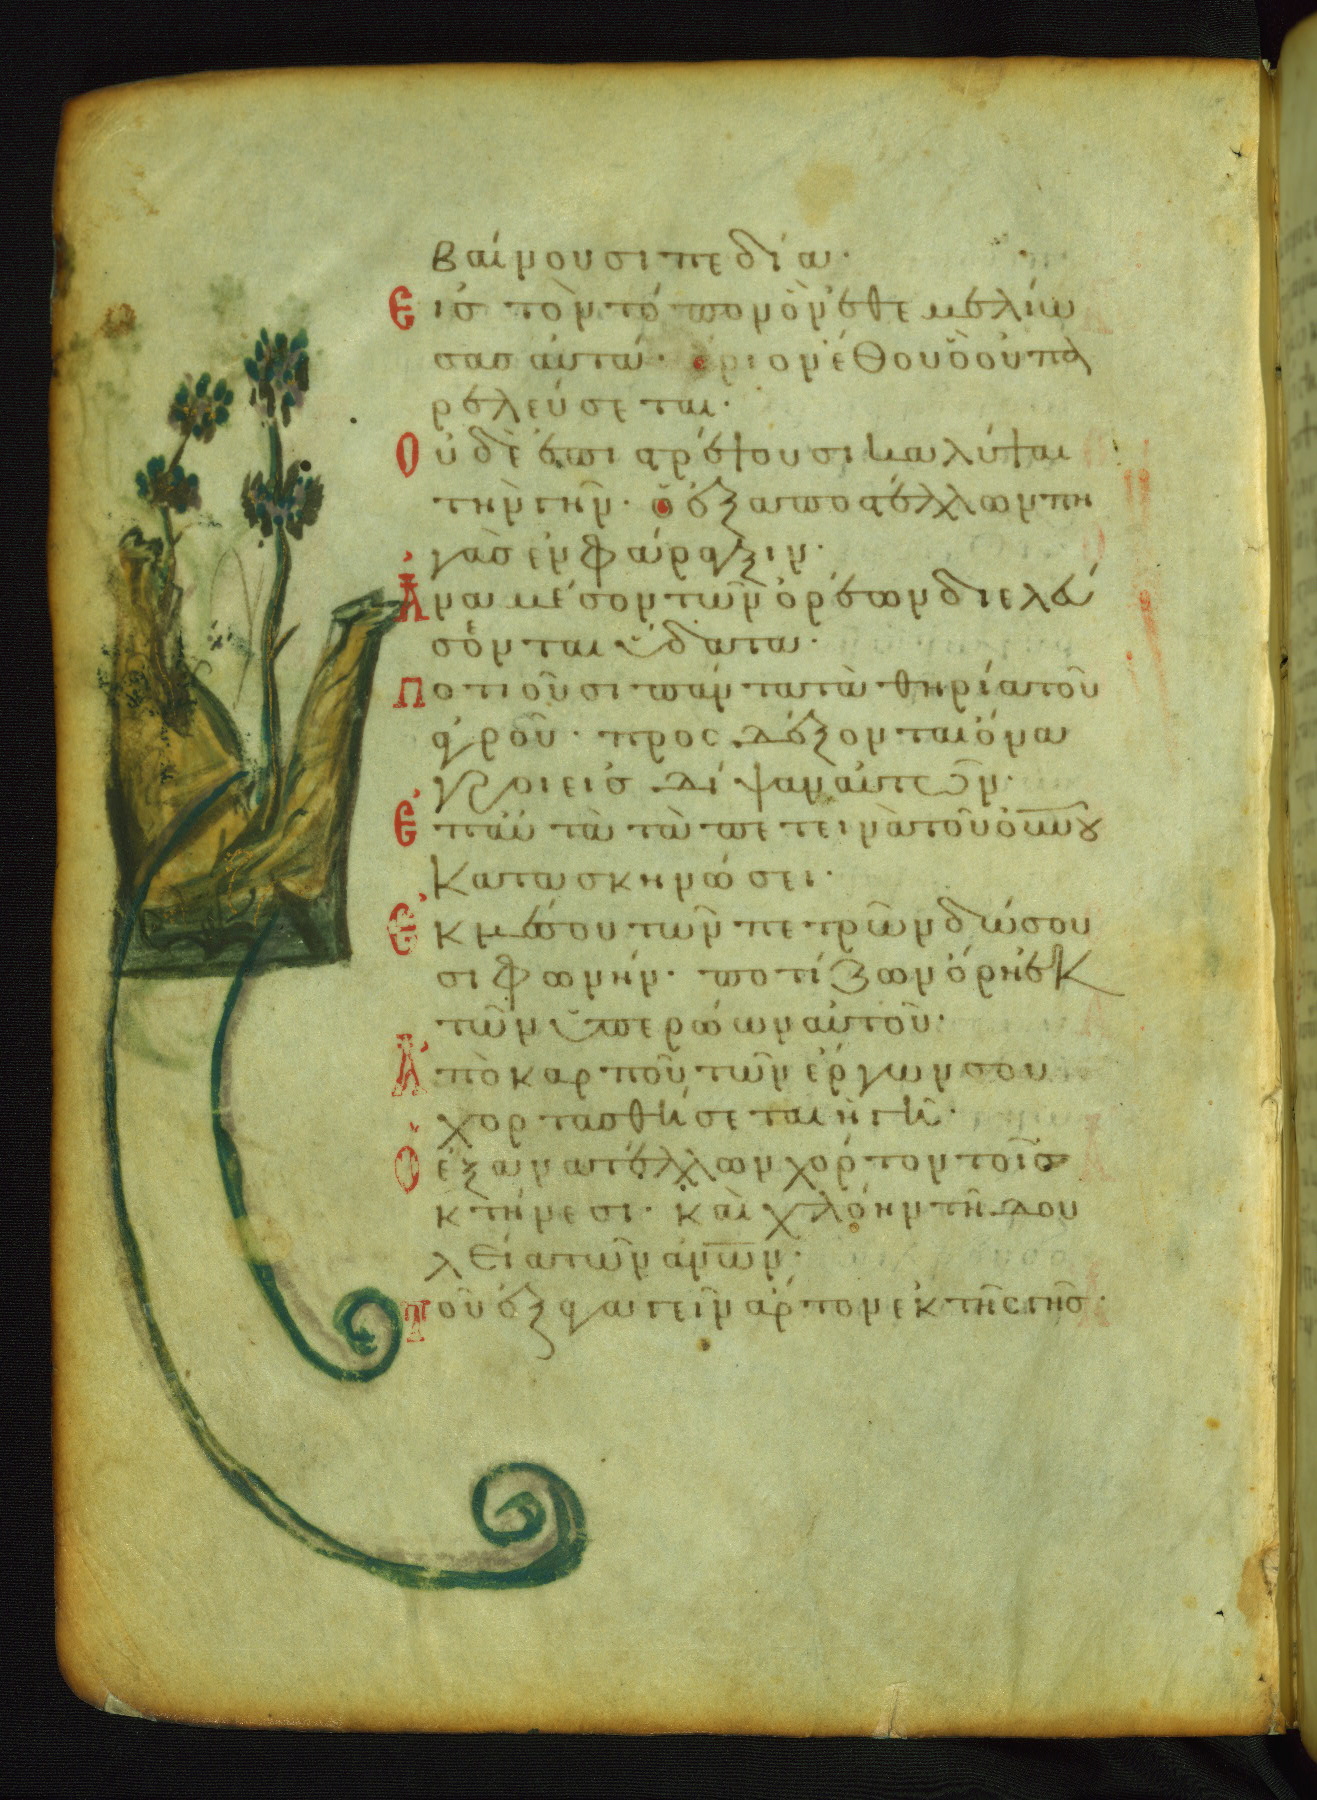 βαίνουσι πεδία·
Εἰσ τὸν τόπον ὃν ἐθεμελίω
σασ αὐτά· ὅριον ἔθου ὃ οὐ πα
ρελεύσεται·
Οὐδὲ ἐπιστρέψουσι καλύψαι
τὴν γῆν· ὁ ἐξαποστέλλων πη
γὰσ ἐν φάραγξιν·
Ἀνὰ μέσον τῶν ὀρέων διελεύ
σονται ὕδατα·
Ποτιοῦσι πάντα τὰ θηρία τοῦ
ἀγροῦ· προσδέξονται ὄνα
γροι εἰσ δίψαν αὐτῶν·
Ἐπ αὐτὰ τὰ πετεινὰ τοῦ ου̅νου̅
κατασκηνώσει·
Ἐκ μέσου τῶν πετρῶν δώσου
σι φωνήν· ποτίζων ὄρη ἐκ
τῶν ὑπερώων αὐτοῦ·
Ἀπὸ καρποῦ τῶν ἔργων σου
χορτασθήσεται ἡ γῆ·
Ὁ ἐξανατέλλων χόρτον τοῖσ
κτήνεσι· καὶ χλόην τῆ δου
λεία τῶν ἀν̅ω̅ν·
Τοῦ ἐξαγαγεῖν ἄρτον ἐκ τῆς γῆσ·